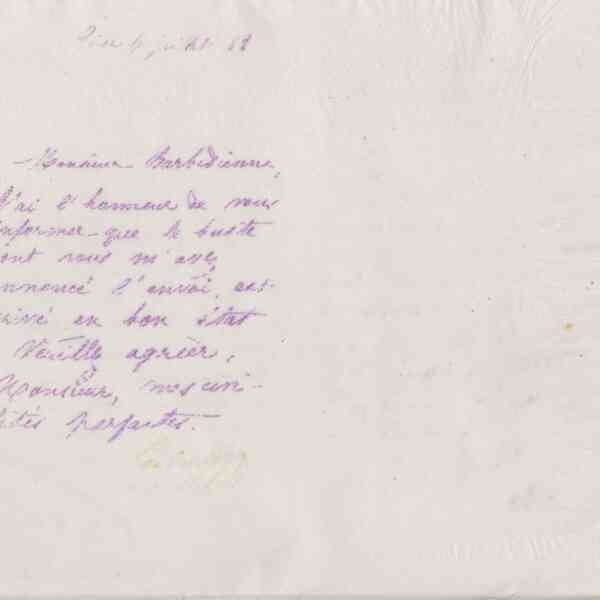 juillet 82
Monsieur Barbedienne,
J'ai l'honneur de vous
informer que le buste
dont vous m'avez
annoncé l'envoi, est
arrivé en bon état
Veuillez agréer,
Monsieur, mes civi-
lités parfaites.